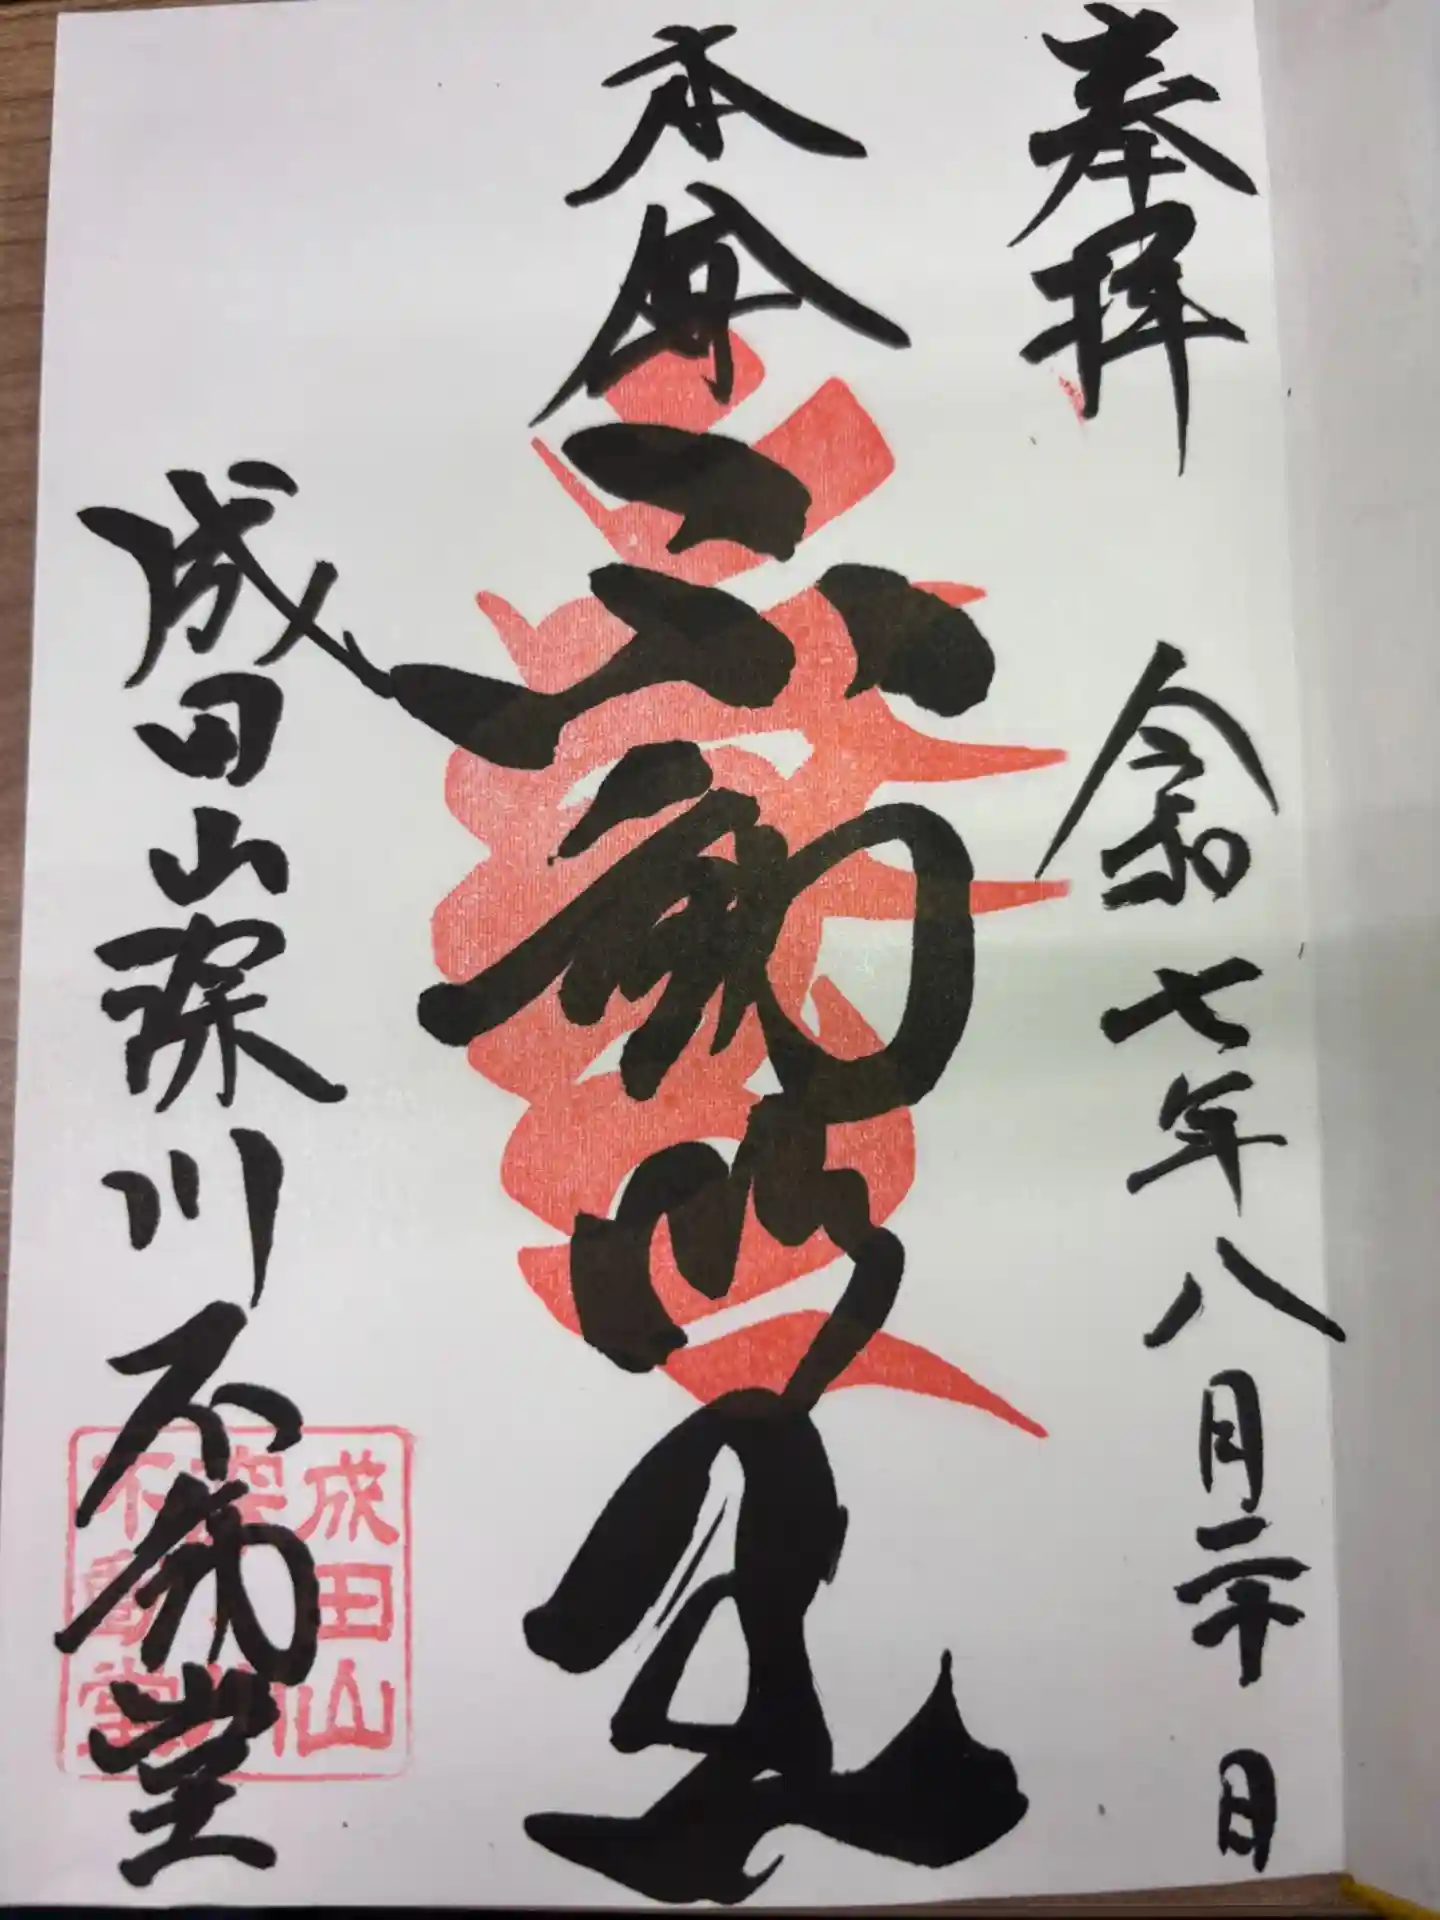 奉拝
令和七年八月二十日
本尊
不動明王
成田山深川不動堂
成田山
深川
不動堂